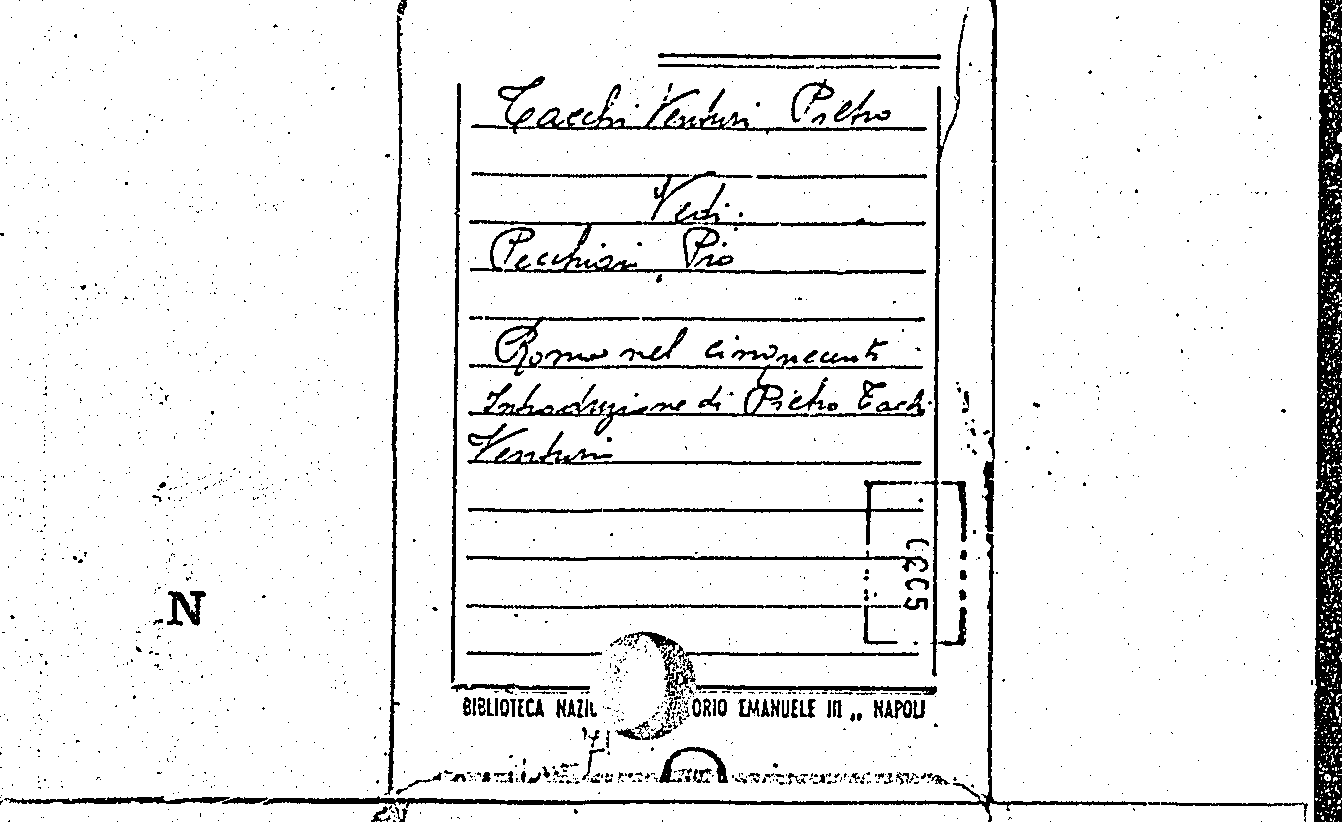 Tacchi Venturi Pietro
Vedi.
Pecchiai, Pio
Roma nel cinquecento
Introduzione di Pietro Tacchi
Venturi
N
BIBLIOTECA NAZI ORIO EMANUELE III „ NAPOLI